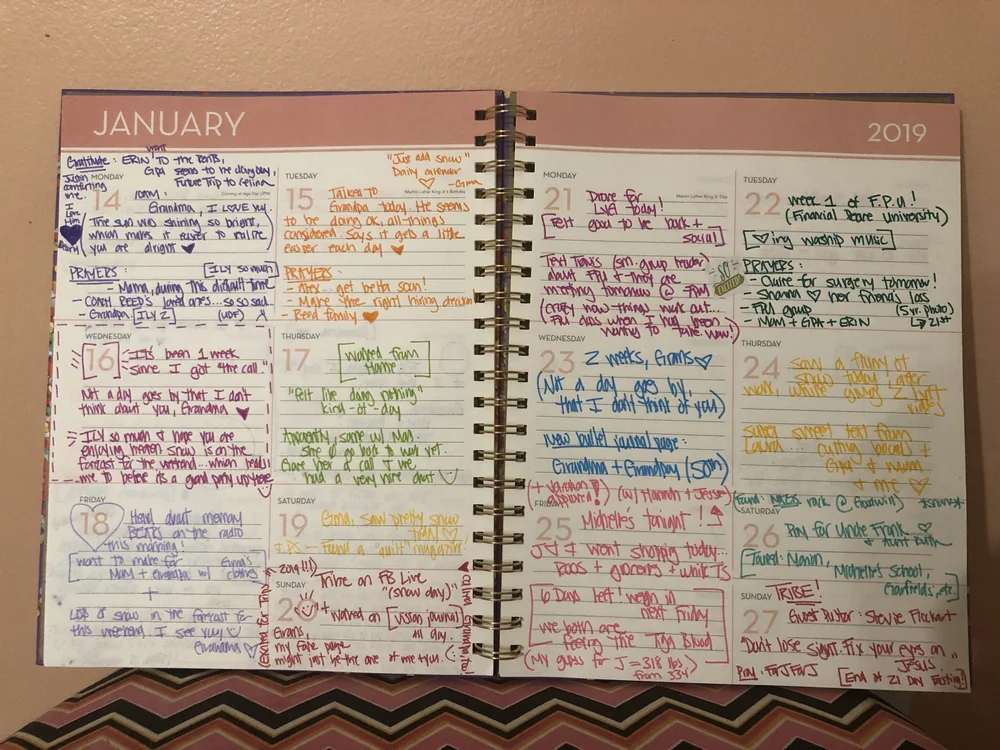 JANUARY
Gratitude: ERIN went TO the
seems to be okay today,
Future Trip to
Justin
comforting
me.
I
Love
Him
MONDAY
14
Coming of Age Day (JPN)
Grandma, I LOVE YOU.
The sun was shining so bright,
which makes it easier to realize
you are alright
PRAYERS: ILY so much
- Mama, during this difficult time
- COACH REED'S loved ones... so so sad
- Grandpa. ILY 2
"Just add snow"
Daily calendar
- Gma
TUESDAY
15
Martin Luther King Jr.'s Birthday
Talked to
Grandpa today. He seems
to be doing ok, all things
considered. Says it gets a little
easier each day
PRAYERS:
- Alex.. get better soon!
- Make the right hiring decision
- Reed family
WEDNESDAY
16
It's been 1 week
since I got "the call."
Not a day goes by that I don't
think about you, Grandma
ILY so much & hope you are
enjoying heaven. Snow is on the
forecast for the weekend... which leads
me to believe it's a grand party up there
THURSDAY
17
worked from
Home.
"felt like doing nothing"
kind-of-day
Apparently, same w/ Mom.
She go back to work yet.
Gave her a call & we
had a very nice chat
FRIDAY
18
Heard about memory
BEARS on the radio
this morning!
want to make for
MOM + Grandpa w/ Gma's
clothes
+
LOTS of snow in the forecast for
this weekend. I see you
Grandma
SATURDAY
19
Gma, saw pretty snow
today
P.S. - Found a "quilt" magazine
SUNDAY
20
Tribe on FB Live
"(snow day)"
+ worked on vision journal
all day.
Grans,
my fave page
might just be the one of me + you.
(Excited for Trip)
2019
MONDAY
21
Martin Luther King Jr. Day
Drove for
Lyft today!
Felt good to be back +
social
Text Travis (sm. group leader)
about FPU & they are
meeting tomorrow @ 7PM
(crazy how things work out...
FPU class when I had been
wanting to take. Wow!)
SO
EXCITED
TUESDAY
22
week 1 of F.P.U!
(Financial Peace University)
ing worship music
PRAYERS:
- Claire for surgery tomorrow!
- Shanna her friend's loss
- FPU group (5 yr. photo)
- MOM + GPA + ERIN 21st
WEDNESDAY
23
2 weeks, Grans
(Not a day goes by,
that I don't think of you)
New bullet journal page:
Grandma + Grandpa (50th)
THURSDAY
24
saw a flurry of
snow today after
work, while giving 2 Lyft
rides
super sweet text from
Laura... cutting coupons &
Gma & mum
& me
FRIDAY
25
(w/ Hannah + Jesse)
Michelle's tonight!
J & I went shopping today...
ROOS + groceries + white Ts
6 Days left! weigh in
next Friday
we both are
feeling the Tiger Blood
(My guess for J = 318 lbs
from 334)
(found: rock @ Goodwill)
SATURDAY
26
Pray for Uncle Frank
+ Aunt Ruth
Toured: Marion,
Michelle's School,
Garfields, etc.
SUNDAY
27
TRIBE!
Guest Pastor: Stevie Flockhart
"Don't lose sight. Fix your eyes on
JESUS"
[End of 21 Day Fasting!]